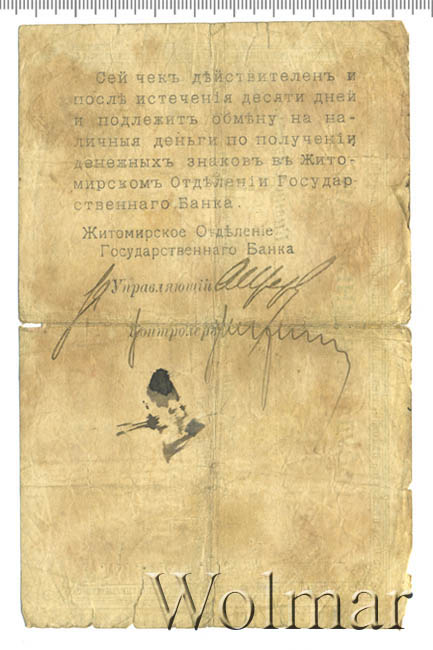 Сей чекъ дѣйствителенъ и
послѣ истеченія десяти дней
и подлежитъ обмѣну на на-
личныя деньги по полученіи
денежныхъ знаковъ въ Жито-
мирскомъ Отдѣленіи Государ-
ственнаго Банка.
Житомирское Отдѣленіе
Государственнаго Банка
Управляющій
Контролеръ
Wolmar